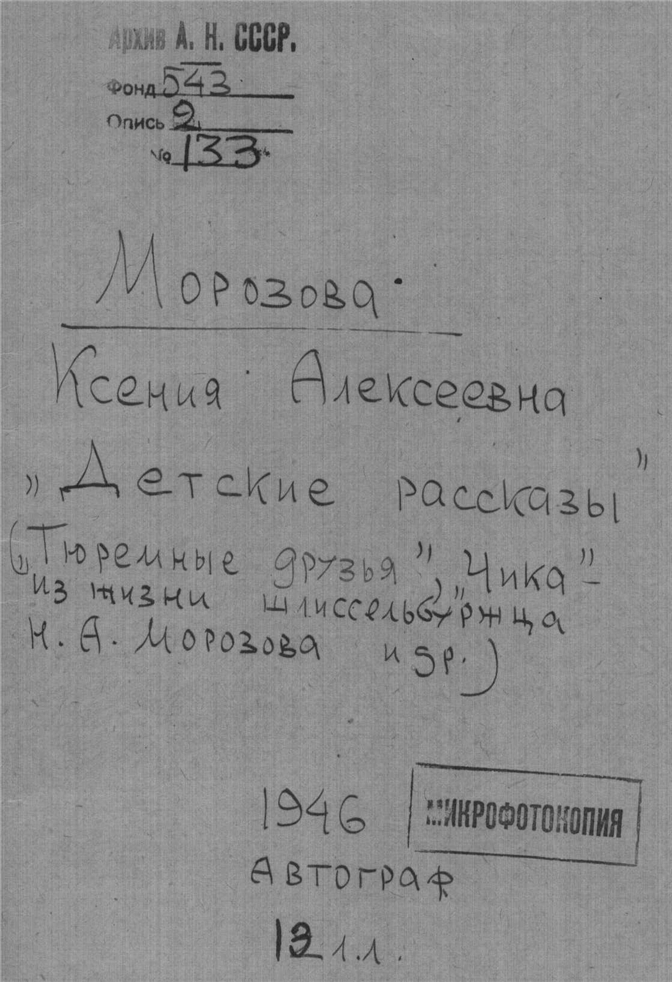 Архив А. Н. СССР.
Фонд 543
Опись 2
№ 133
Морозова
Ксения Алексеевна
„Детские рассказы"
(„Тюремные друзья", „Чика" –
из жизни шлиссельбуржца
Н. А. Морозова и др.)
1946
МИКРОФОТОКОПИЯ
Автограф
л.л.